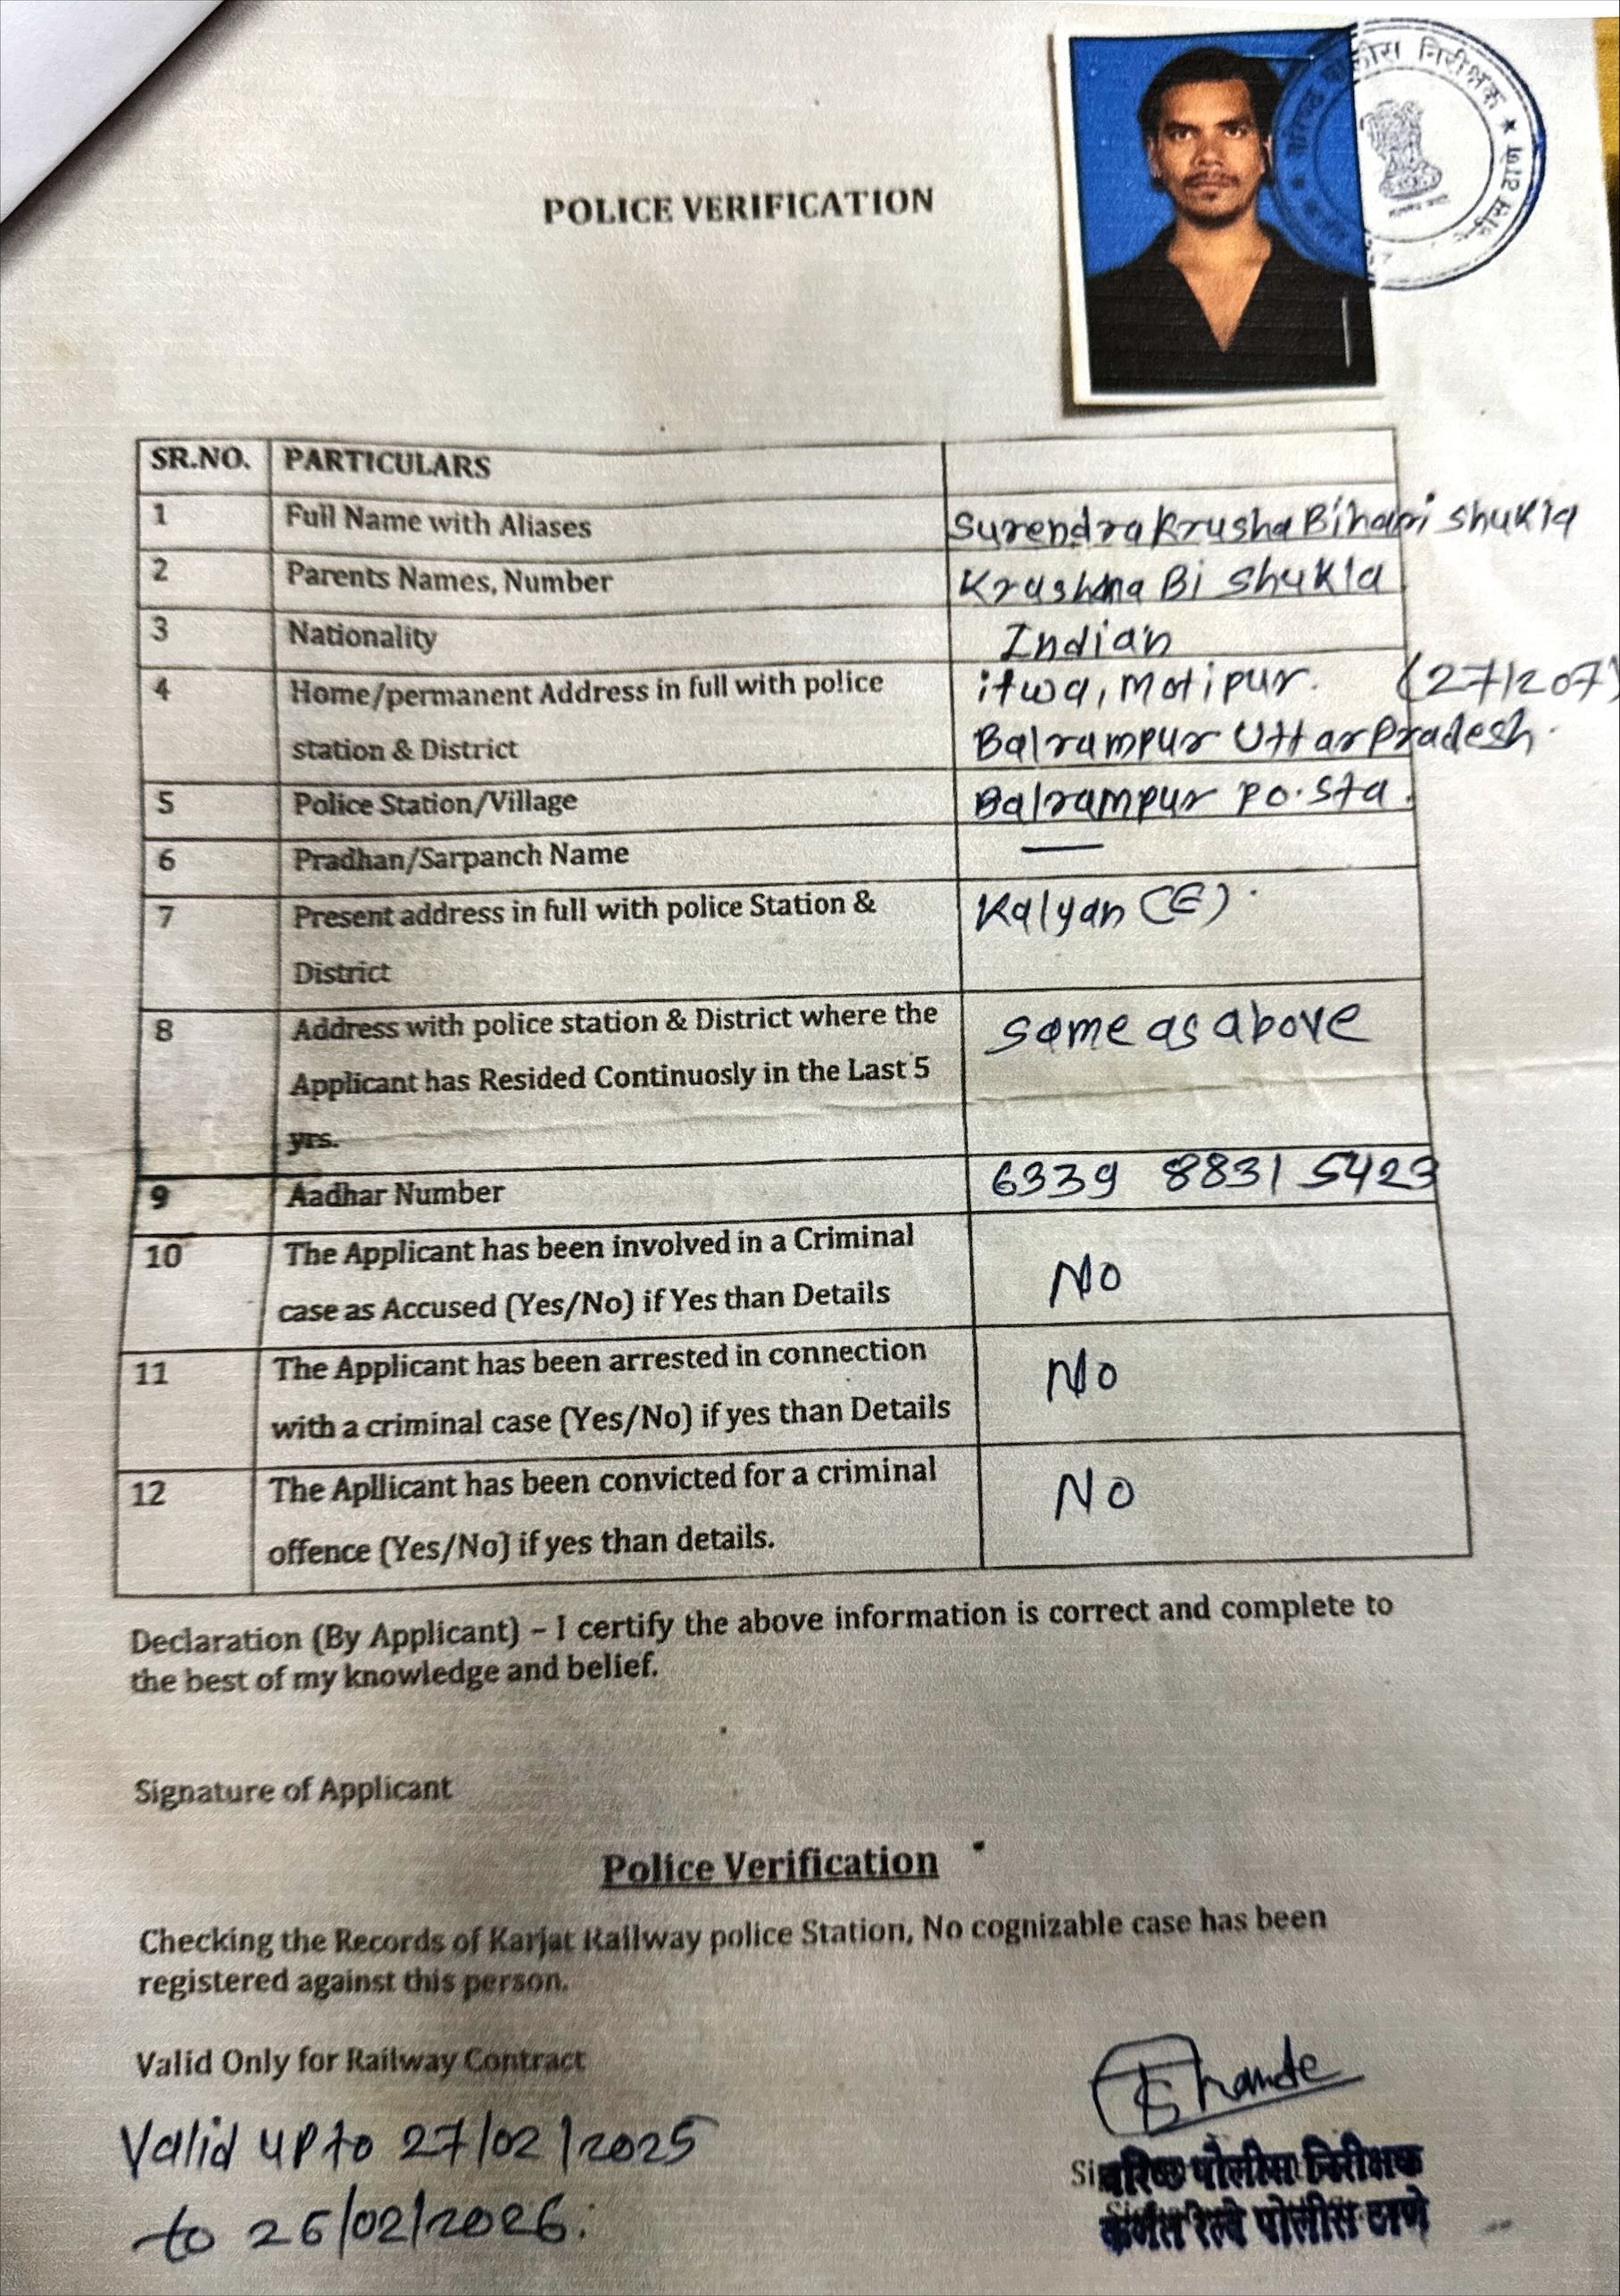 पोलीस निरीक्षक ★
POLICE VERIFICATION
SR.NO. PARTICULARS
1 Full Name with Aliases Surendra Krusha Bihari Shukla
2 Parents Names, Number Krushna Bi Shukla
3 Nationality Indian
4 Home/permanent Address in full with police itwa, Motipur. (271207)
station & District Balrampur Uttar Pradesh.
5 Police Station/Village Balrampur Po. Sta.
6 Pradhan/Sarpanch Name —
7 Present address in full with police Station & Kalyan (E).
District
8 Address with police station & District where the same as above
Applicant has Resided Continuosly in the Last 5
yrs.
9 Aadhar Number 6339 8831 5423
10 The Applicant has been involved in a Criminal
case as Accused (Yes/No) if Yes than Details No
11 The Applicant has been arrested in connection No
with a criminal case (Yes/No) if yes than Details
12 The Apllicant has been convicted for a criminal No
offence (Yes/No) if yes than details.
Declaration (By Applicant) – I certify the above information is correct and complete to
the best of my knowledge and belief.
Signature of Applicant
Police Verification
Checking the Records of Karjat Railway police Station, No cognizable case has been
registered against this person.
Valid Only for Railway Contract
Valid up to 27/02/2025
to 26/02/2026.
वरिष्ठ पोलीस निरीक्षक
कर्जत रेल्वे पोलीस ठाणे